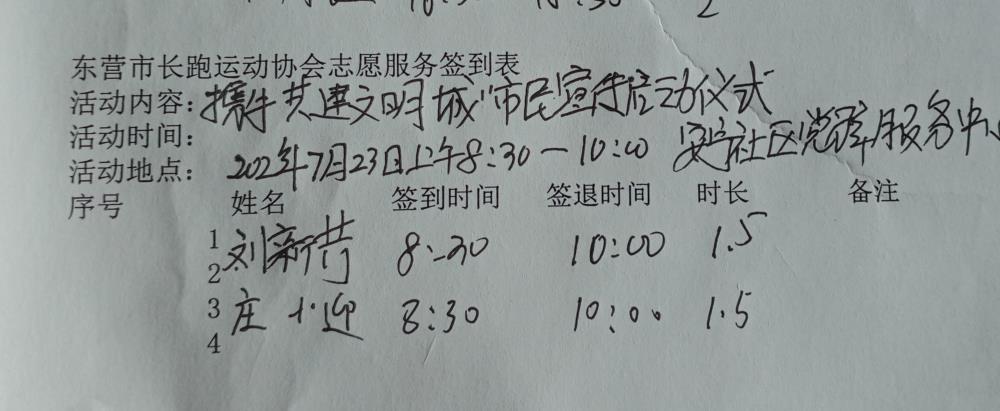 东营市长跑运动协会志愿服务签到表
活动内容：携手共建文明城市民宣传启动仪式
活动时间：
活动地点： 2022年7月23日上午8:30—10:00 安宁社区党群服务中心
序号 姓名 签到时间 签退时间 时长 备注
1
2 刘新芹 8:30 10:00 1.5
3 庄小迎 8:30 10:00 1.5
4